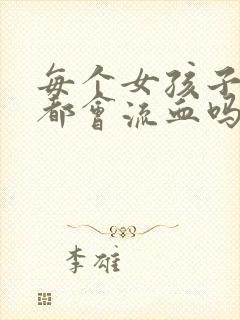 每个女孩子
都会流血吗
李雄